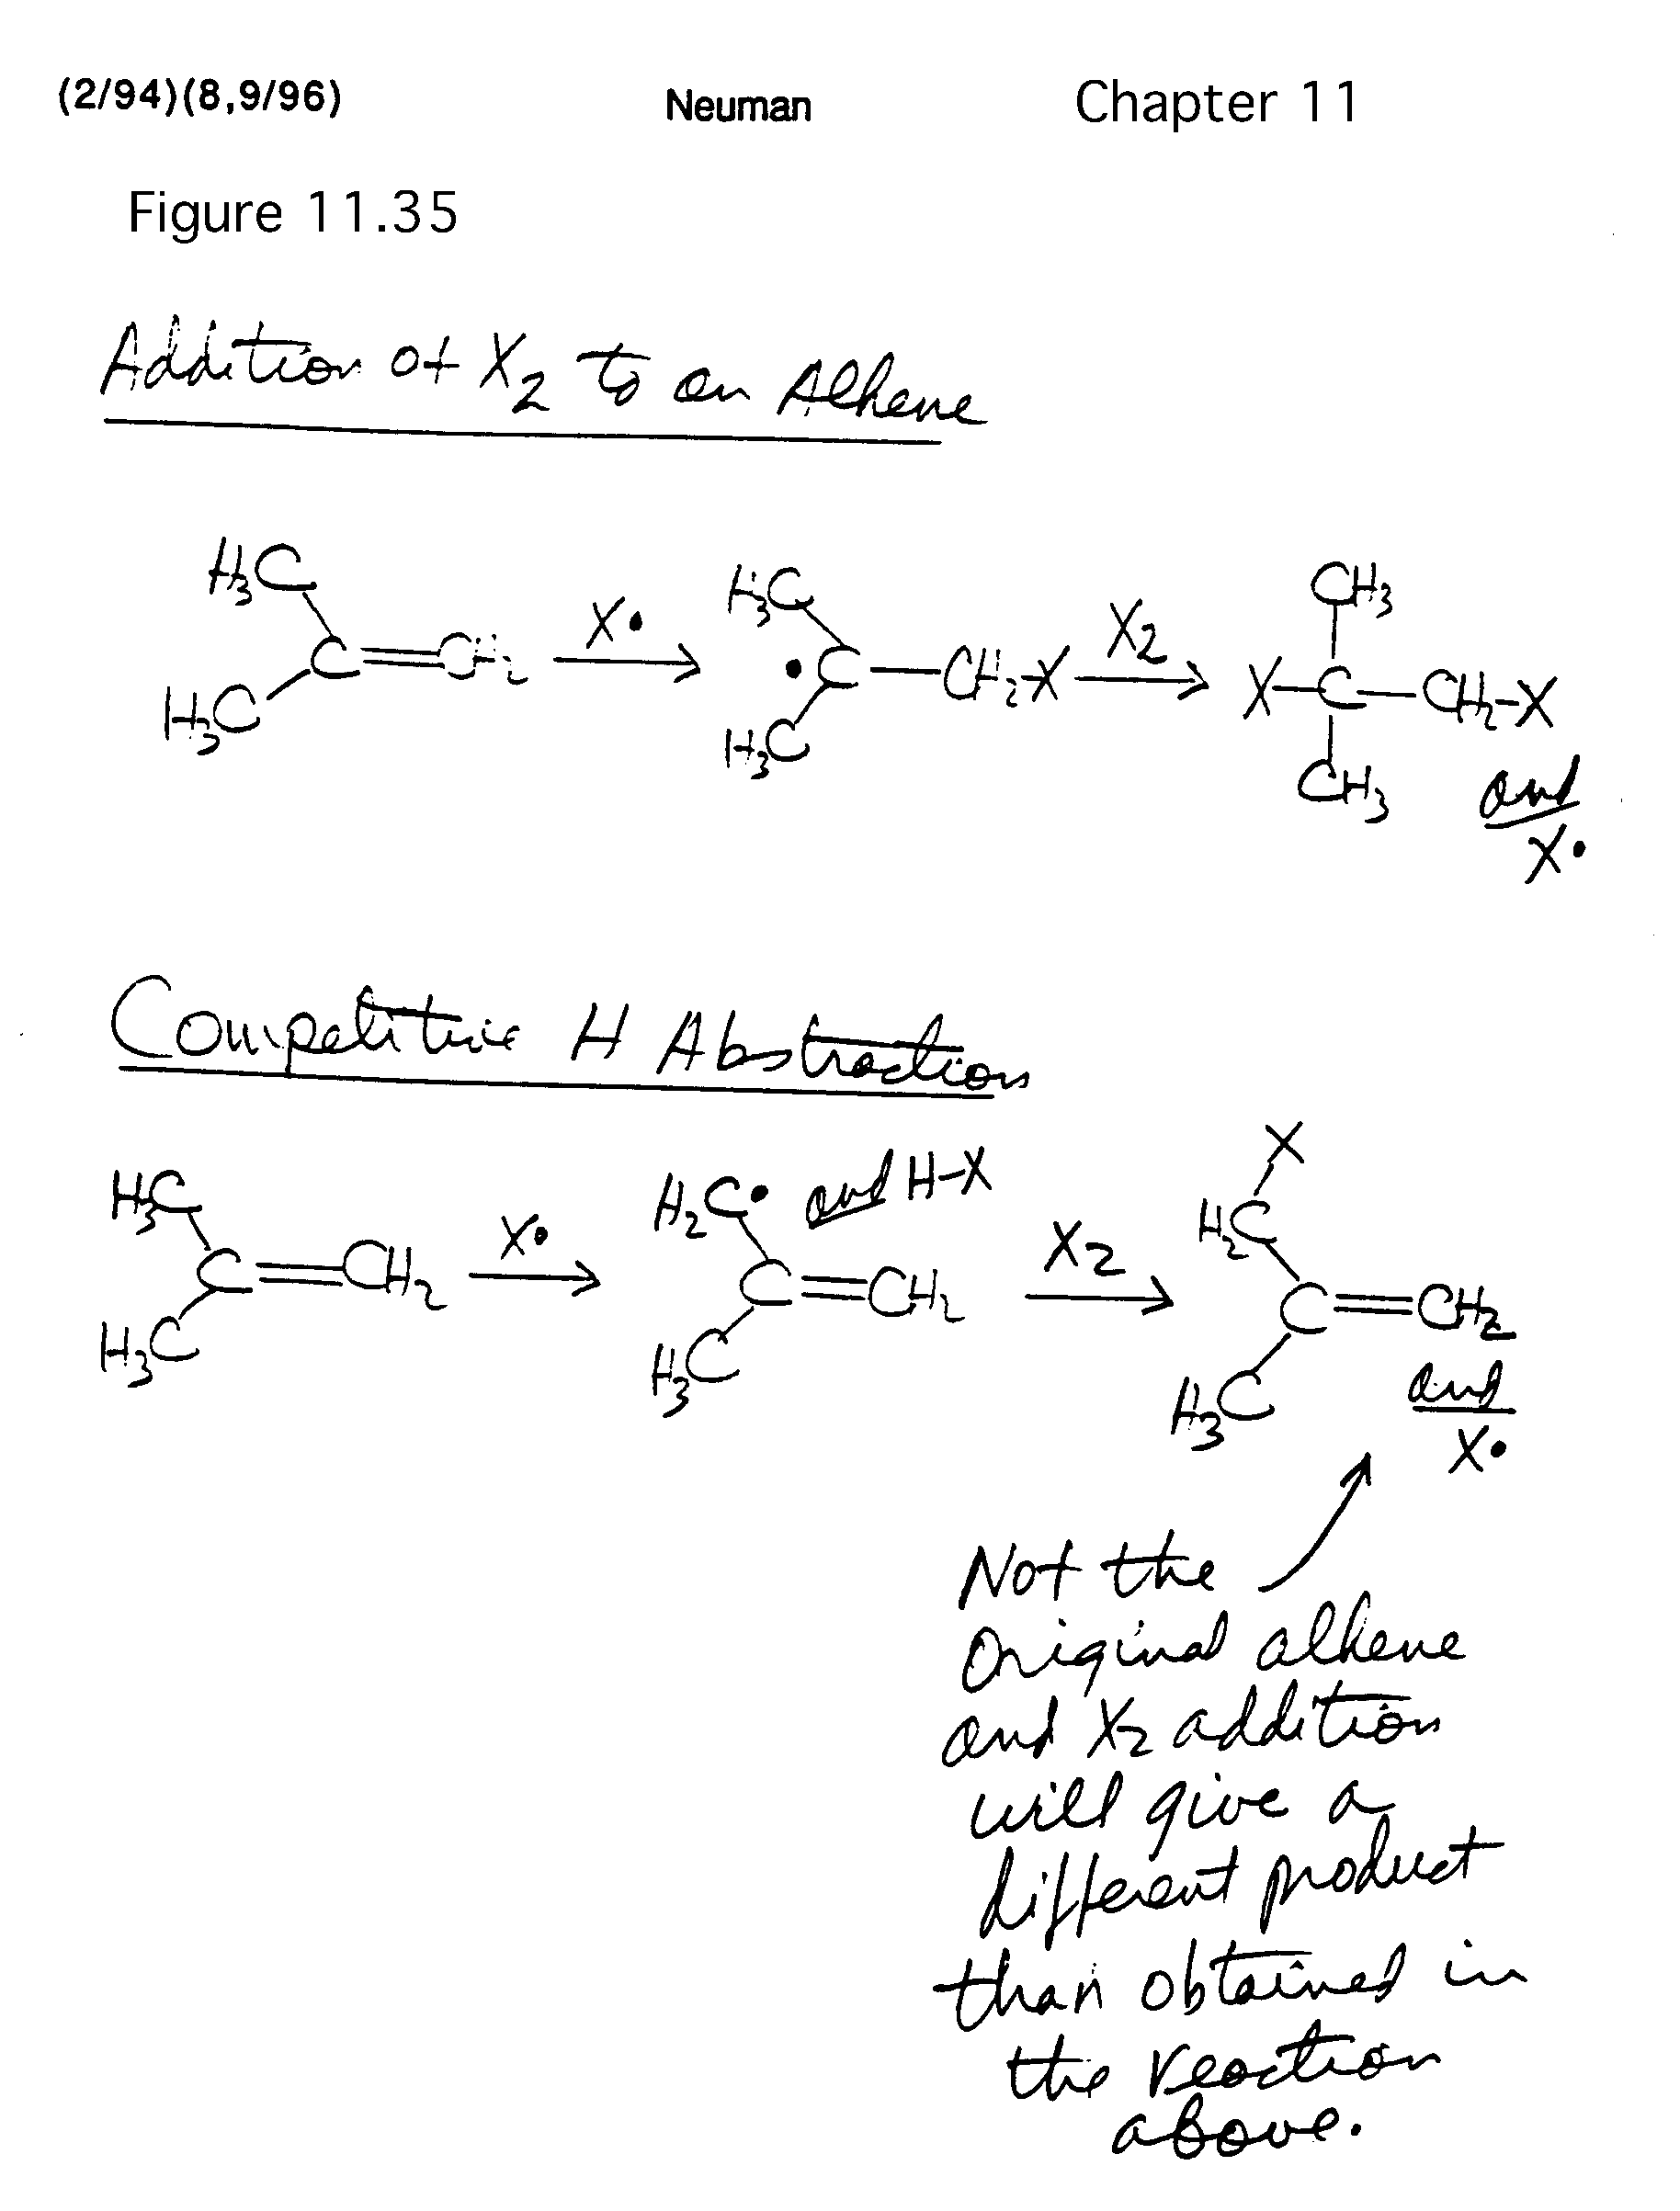 (2/94)(8,9/96) Neuman Chapter 11
Figure 11.35
Addition of X2 to an Alkene
H3C H3C CH3
C=CH2 X• •C—CH2-X X2 X—C—CH2-X
H3C H3C CH3 and
X•
Competitive H Abstraction
X
H3C H2C• and H-X H2C
C=CH2 X• C=CH2 X2 C=CH2
H3C H3C H3C and
X•
Not the
original alkene
and X2 addition
will give a
different product
than obtained in
the reaction
above.